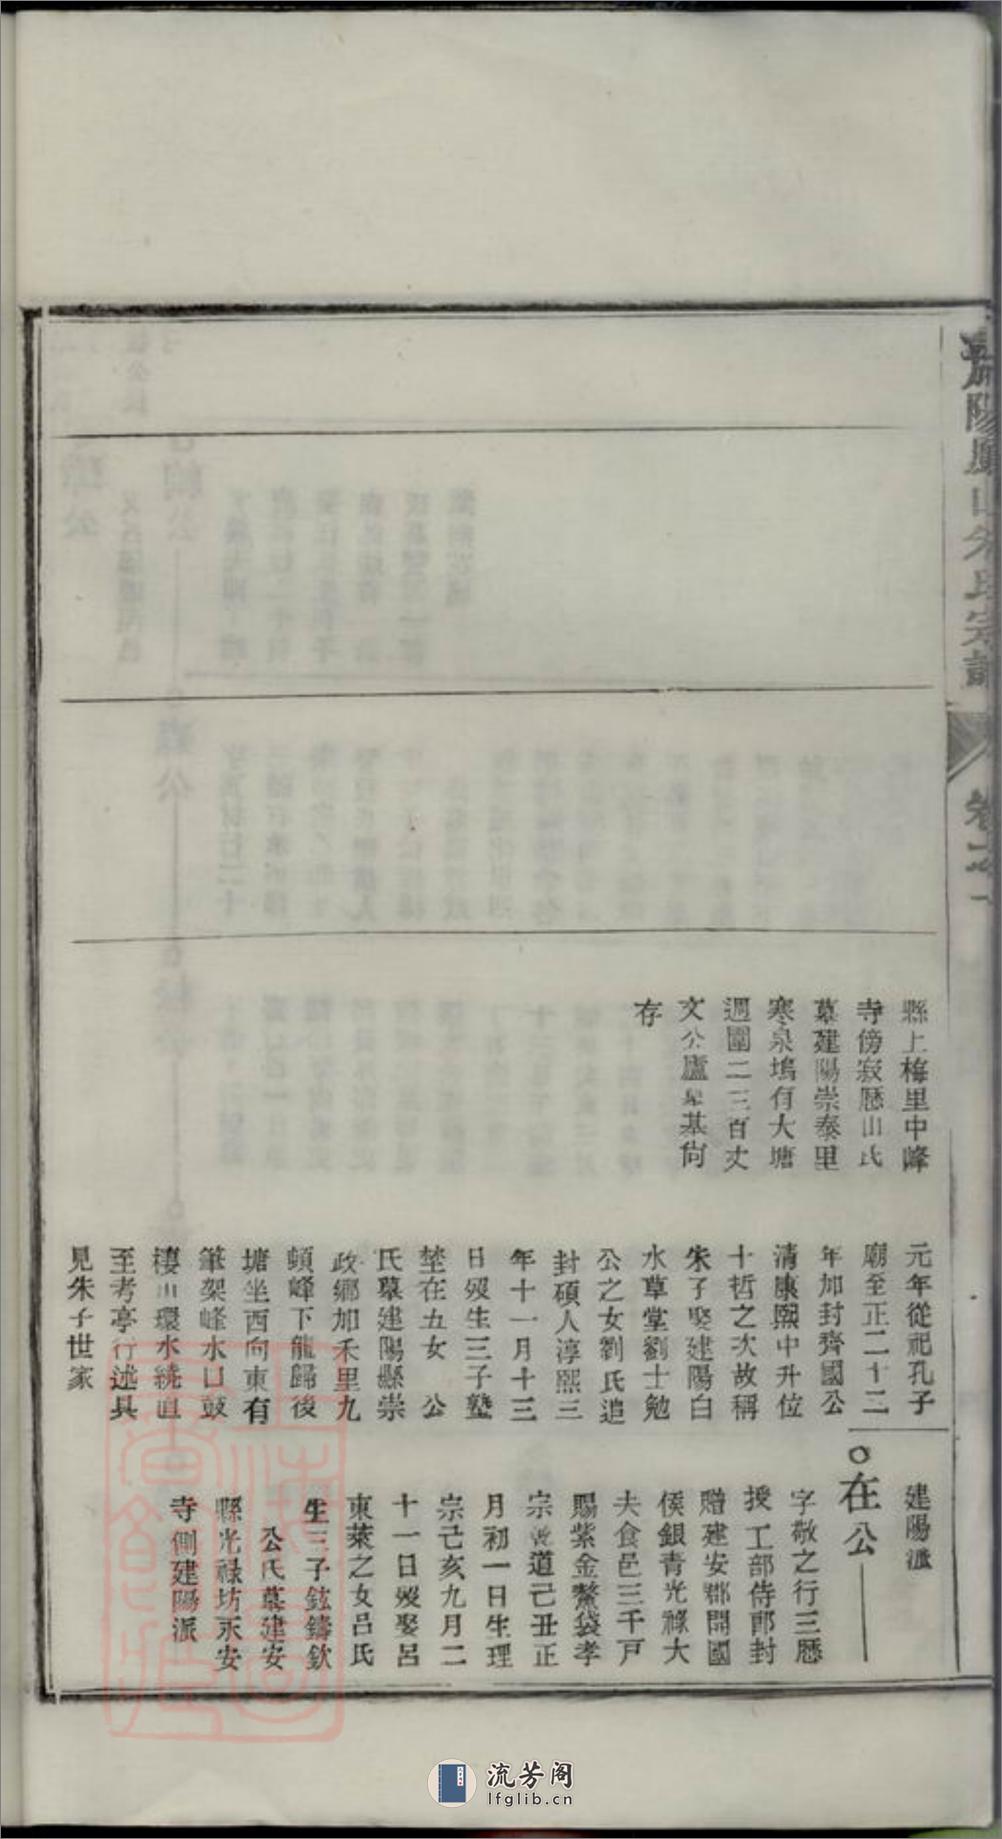 陽鳳山朱氏宗譜
卷之一
縣上梅里中峰
寺傍寂歷山氏
墓建陽崇泰里
寒泉塢有大塘
週圍二三百丈
文公廬墓基尙
存
元年從祀孔子
廟至正二十二
年加封齊國公
清康熙中升位
十哲之次故稱
朱子娶建陽白
水草堂劉士勉
公之女劉氏追
封碩人淳熙三
年十一月十三
日歿生三子塾
埜在五女 公
氏墓建陽縣崇
政鄉加禾里九
頓峰下龍歸後
塘坐西向東有
筆架峰水口鼓
樓山環水繞直
至考亭行述具
見朱子世家
建陽派
在公
字敬之行三歷
授工部侍郎封
贈建安郡開國
侯銀青光祿大
夫食邑三千戸
賜紫金鰲袋孝
宗乾道己丑正
月初一日生理
宗己亥九月二
十一日歿娶呂
東萊之女呂氏
生三子鉉鑄欽
公氏墓建安
縣光祿坊永安
寺側建陽派
流芳阁
lfglib.cn